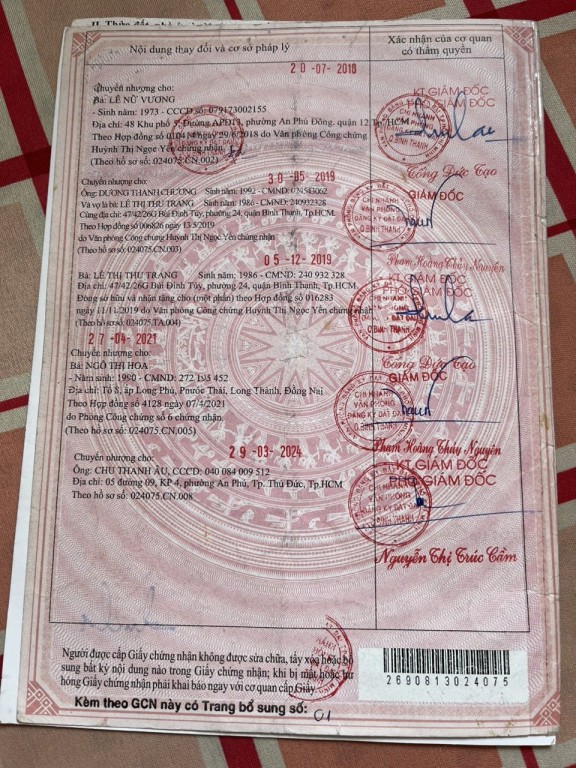 Nội dung thay đổi và cơ sở pháp lý
Xác nhận của cơ quan
có thẩm quyền
20-07-2018
Chuyển nhượng cho:
Bà: LÊ NỮ VƯƠNG
- Sinh năm: 1973 - CCCD số: 079173002155
Địa chỉ: 48 Khu phố 5, Đường APĐ13, phường An Phú Đông, quận 12 Tp.HCM
Theo Hợp đồng số 010414 ngày 29/6/2018 do Văn phòng Công chứng
Huỳnh Thị Ngọc Yến chứng nhận.
(Theo hồ sơ số: 024075.CN.002)
KT.GIÁM ĐỐC
PHÓ GIÁM ĐỐC
Tống Đức Tạo
30-05-2019
Chuyển nhượng cho:
Ông: DƯƠNG THANH CHƯƠNG Sinh năm: 1992 - CMND:
Và vợ là bà: LÊ THỊ THU TRANG Sinh năm: 1986 - CMND: 240932328
Cùng địa chỉ: 47/42/26G Bùi Đình Túy, phường 24, quận Bình Thạnh, Tp.HCM.
Theo Hợp đồng số 006826 ngày 13/5/2019
do Văn phòng Công chứng Huỳnh Thị Ngọc Yến chứng nhận
(Theo hồ sơ số: 024075.CN.003)
GIÁM ĐỐC
CHI NHÁNH
VĂN PHÒNG
ĐĂNG KÝ ĐẤT ĐAI
Q.BÌNH THẠNH
Phạm Hoàng Thúy Nguyên
05-12-2019
Bà: LÊ THỊ THU TRANG Sinh năm: 1986 - CMND: 240 932 328
Địa chỉ: 47/42/26G Bùi Đình Túy, phường 24, quận Bình Thạnh, Tp.HCM
Đồng sở hữu và nhận tặng cho (một phần) theo Hợp đồng số 016283
ngày 11/11/2019 do Văn phòng Công chứng Huỳnh Thị Ngọc Yến chứng nhận
(Theo hồ sơ số: 024075.TA.004)
KT.GIÁM ĐỐC
PHÓ GIÁM ĐỐC
Tống Đức Tạo
27-04-2021
Chuyển nhượng cho:
Bà: NGÔ THỊ HOA
- Năm sinh: 1990 - CMND: 272 195 452
Địa chỉ: Tổ 8, ấp Long Phú, Phước Thái, Long Thành, Đồng Nai
Theo Hợp đồng số 4128 ngày 07/4/2021
do Phòng Công chứng số 6 chứng nhận.
(Theo hồ sơ số: 024075.CN.005)
GIÁM ĐỐC
CHI NHÁNH
VĂN PHÒNG
ĐĂNG KÝ ĐẤT ĐAI
Q.BÌNH THẠNH
Phạm Hoàng Thúy Nguyên
29-03-2024
Chuyển nhượng cho:
Ông: CHU THANH ÂU, CCCD: 040 084 009 512
Địa chỉ: 05 đường 09, KP 4, phường An Phú, Tp. Thủ Đức, Tp.HCM
Theo hồ sơ số: 024075.CN.008
KT.GIÁM ĐỐC
PHÓ GIÁM ĐỐC
Nguyễn Thị Trúc Cầm
Người được cấp Giấy chứng nhận không được sửa chữa, tẩy xóa hoặc bổ
sung bất kỳ nội dung nào trong Giấy chứng nhận; khi bị mất hoặc hư
hỏng Giấy chứng nhận phải khai báo ngay với cơ quan cấp Giấy.
2690813024075
Kèm theo GCN này có Trang bổ sung số: 01